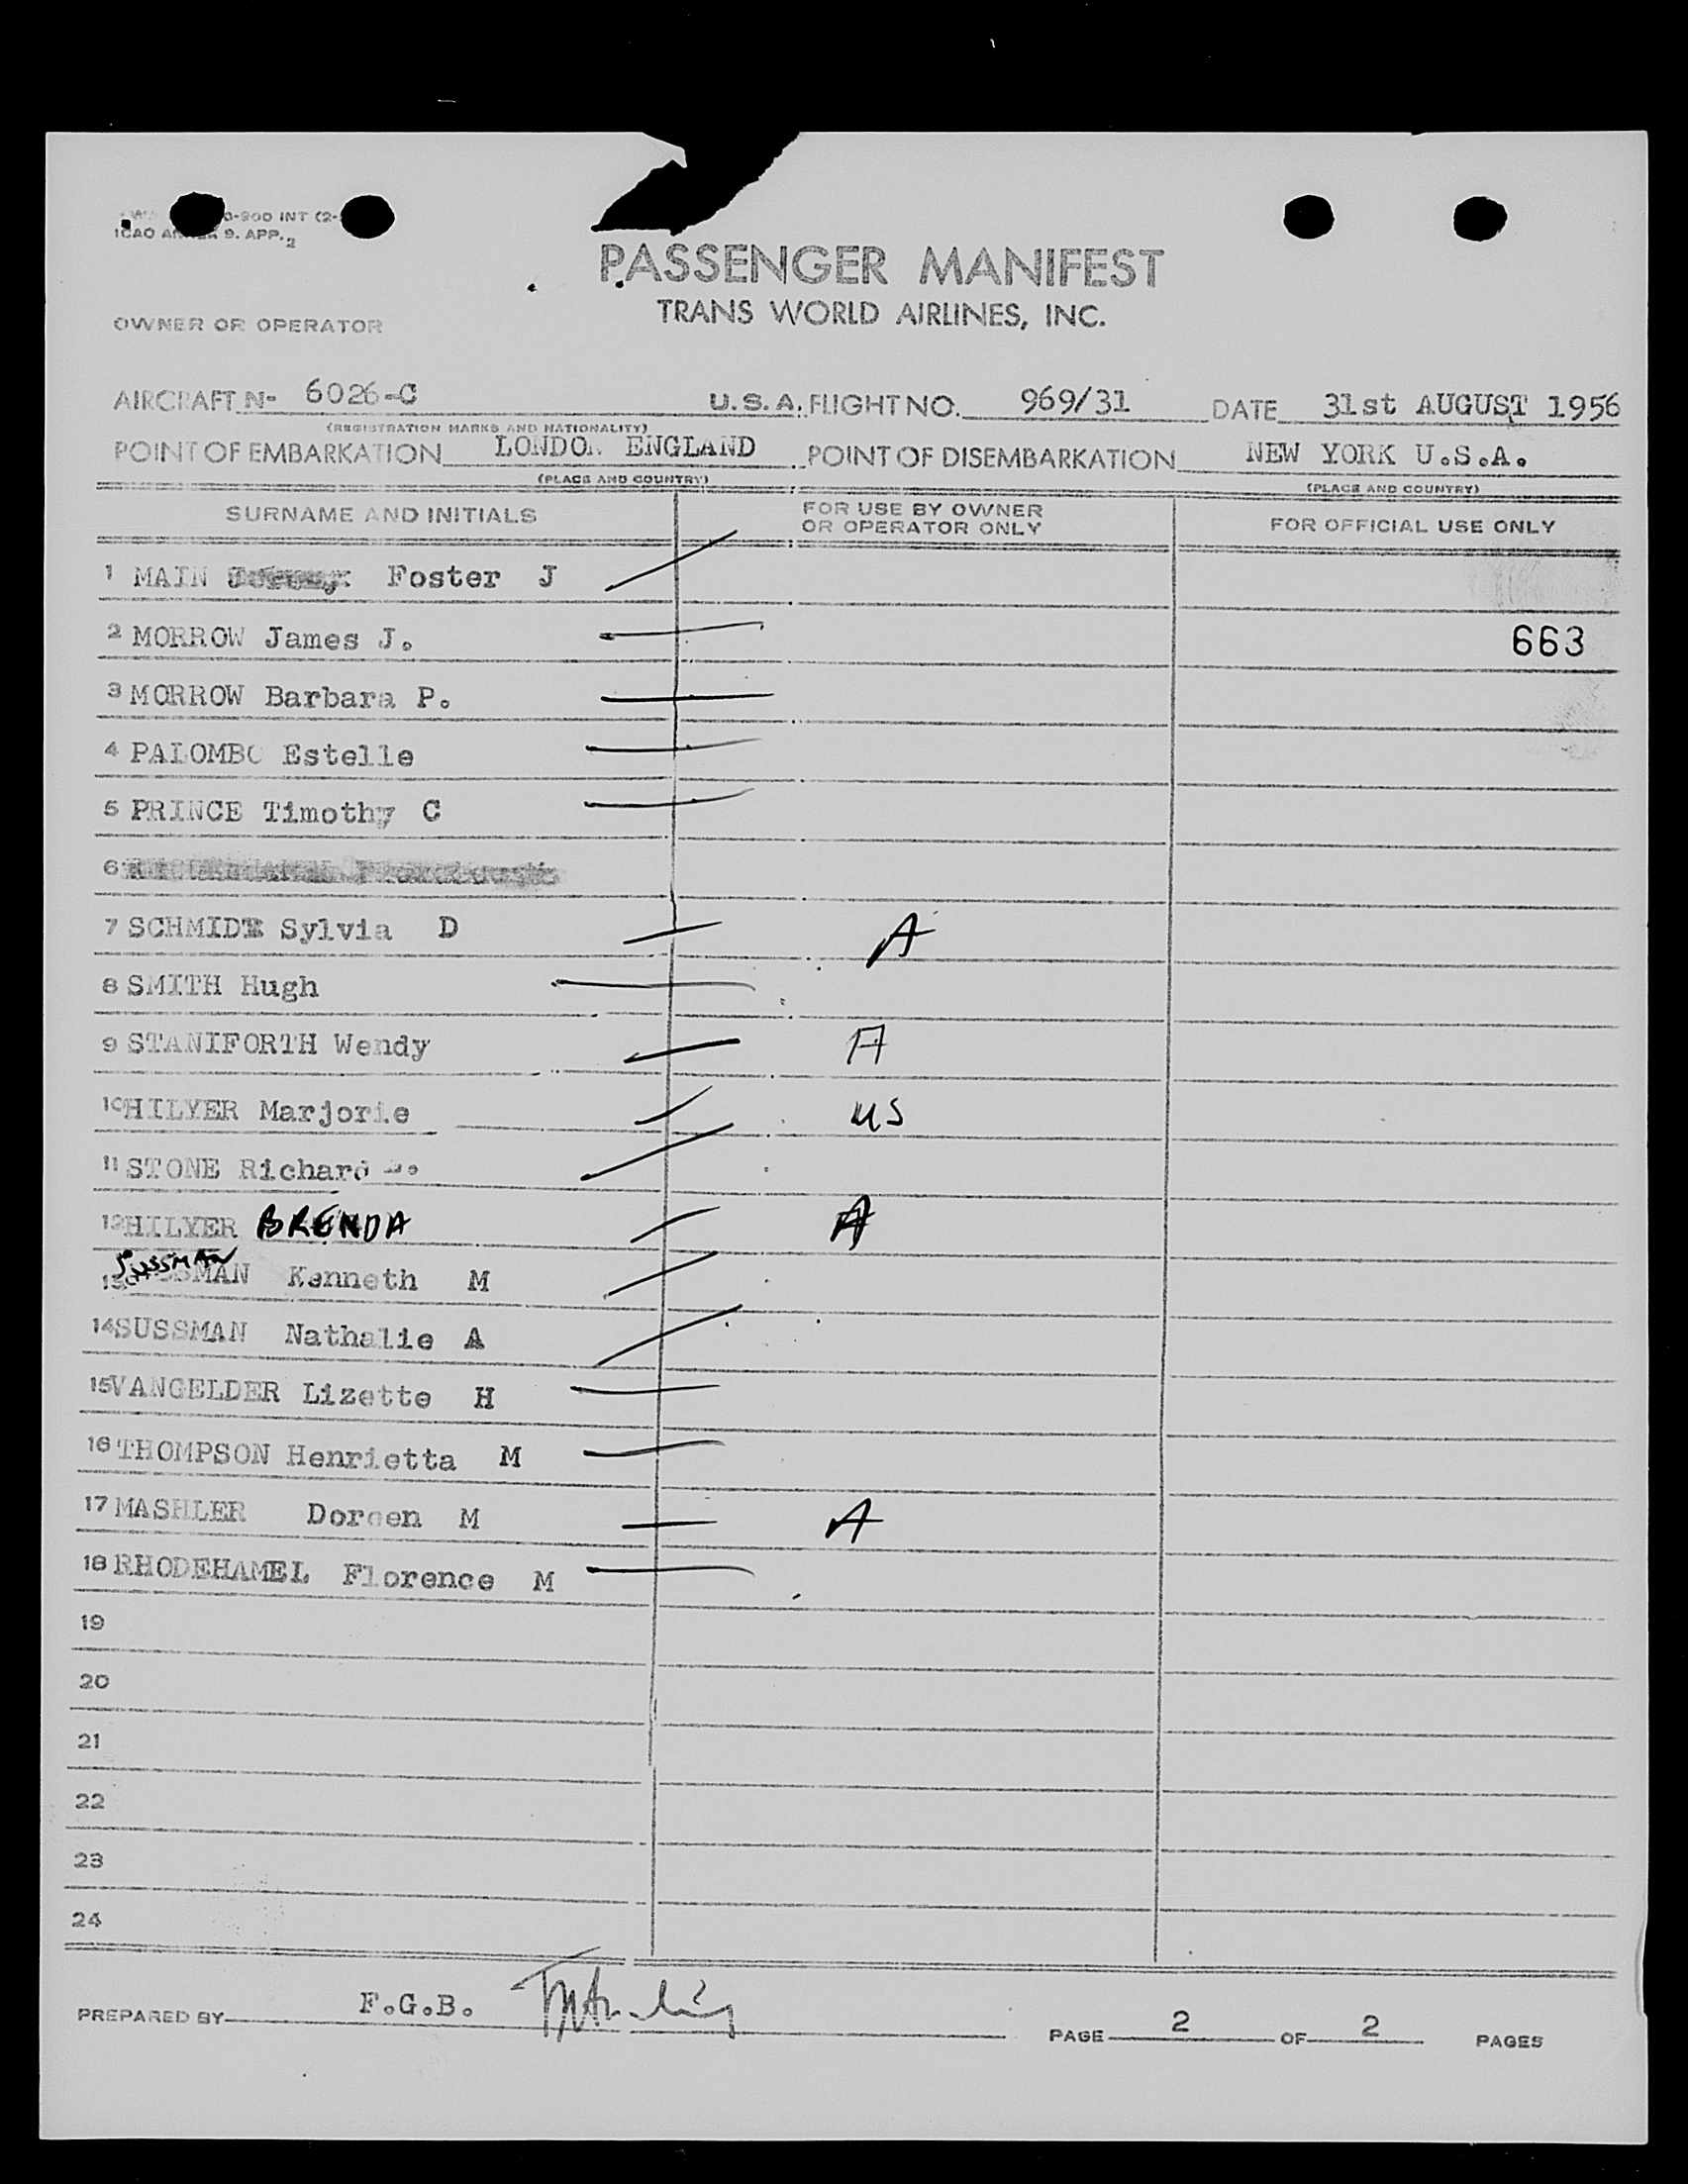 0-900 INT (2-
ICAO 9. APP. 2
PASSENGER MANIFEST
TRANS WORLD AIRLINES, INC.
OWNER OR OPERATOR
AIRCRAFT N- 6026-C U.S.A. FLIGHT NO. 969/31 DATE 31st AUGUST 1956
(REGISTRATION MARKS AND NATIONALITY)
POINT OF EMBARKATION LONDON ENGLAND POINT OF DISEMBARKATION NEW YORK U.S.A.
(PLACE AND COUNTRY) (PLACE AND COUNTRY)
SURNAME AND INITIALS FOR USE BY OWNER OR OPERATOR ONLY FOR OFFICIAL USE ONLY
1 MAIN Foster J
2 MORROW James J. 663
3 MORROW Barbara P.
4 PALOMBO Estelle
5 PRINCE Timothy C
6
7 SCHMIDT Sylvia D A
8 SMITH Hugh
9 STANIFORTH Wendy A
10 HILYER Marjorie US
11 STONE Richard
12 HILYER BRENDA A
SUSSMAN
13 SUSSMAN Kenneth M
14 SUSSMAN Nathalie A
15 VANGELDER Lizette H
16 THOMPSON Henrietta M
17 MASHLER Doreen M A
18 RHODEHAMEL Florence M
19
20
21
22
23
24
PREPARED BY F.G.B. PAGE 2 OF 2 PAGES